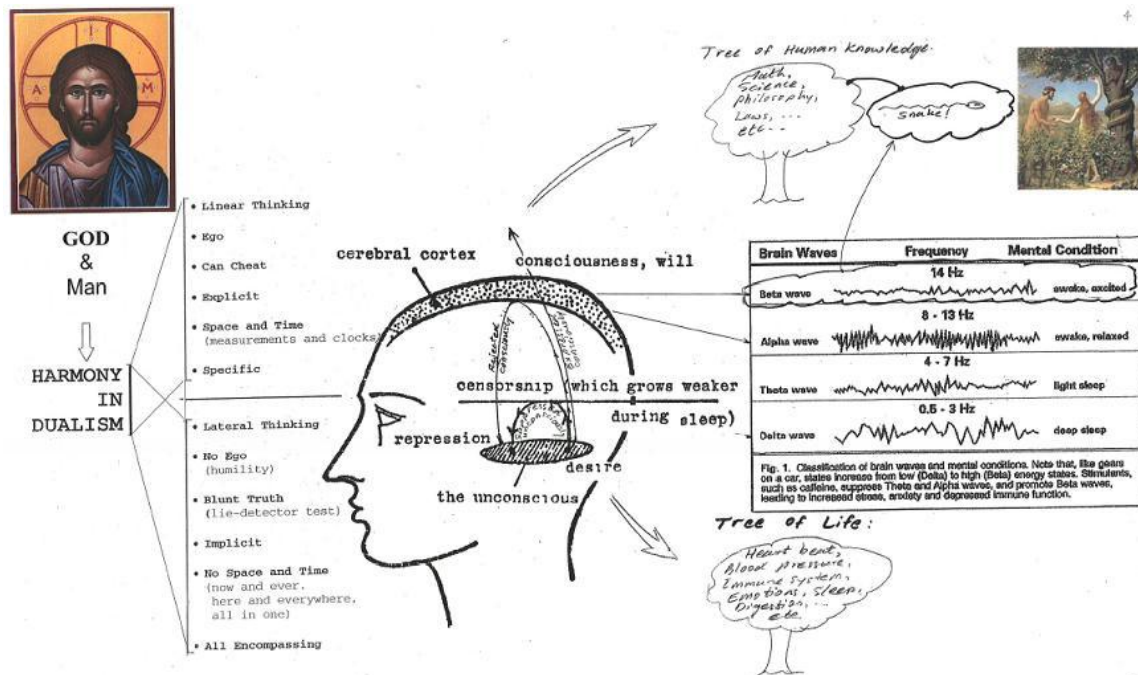 4
I
A M
GOD
&
Man
HARMONY
IN
DUALISM
• Linear Thinking
• Ego
• Can Cheat
• Explicit
• Space and Time
(measurements and clocks)
• Specific
• Lateral Thinking
• No Ego
(humility)
• Blunt Truth
(lie-detector test)
• Implicit
• No Space and Time
(now and ever,
here and everywhere,
all in one)
• All Encompassing
cerebral cortex
consciousness, will
censorship (which grows weaker
during sleep)
repression
desire
the unconscious
Tree of Human Knowledge.
Math,
Science,
Philosophy,
Laws, ...
etc--
snake!
Brain Waves Frequency Mental Condition
14 Hz
Beta wave awake, excited
8 - 13 Hz
Alpha wave awake, relaxed
4 - 7 Hz
Theta wave light sleep
0.5 - 3 Hz
Delta wave deep sleep
Fig. 1. Classification of brain waves and mental conditions. Note that, like gears
on a car, states increase from low (Delta) to high (Beta) energy states. Stimulants,
such as caffeine, suppress Theta and Alpha waves, and promote Beta waves,
leading to increased stress, anxiety and depressed immune function.
Tree of Life:
Heart beat,
Blood pressure,
Immune system,
Emotions, Sleep,
Digestion, ...
etc.